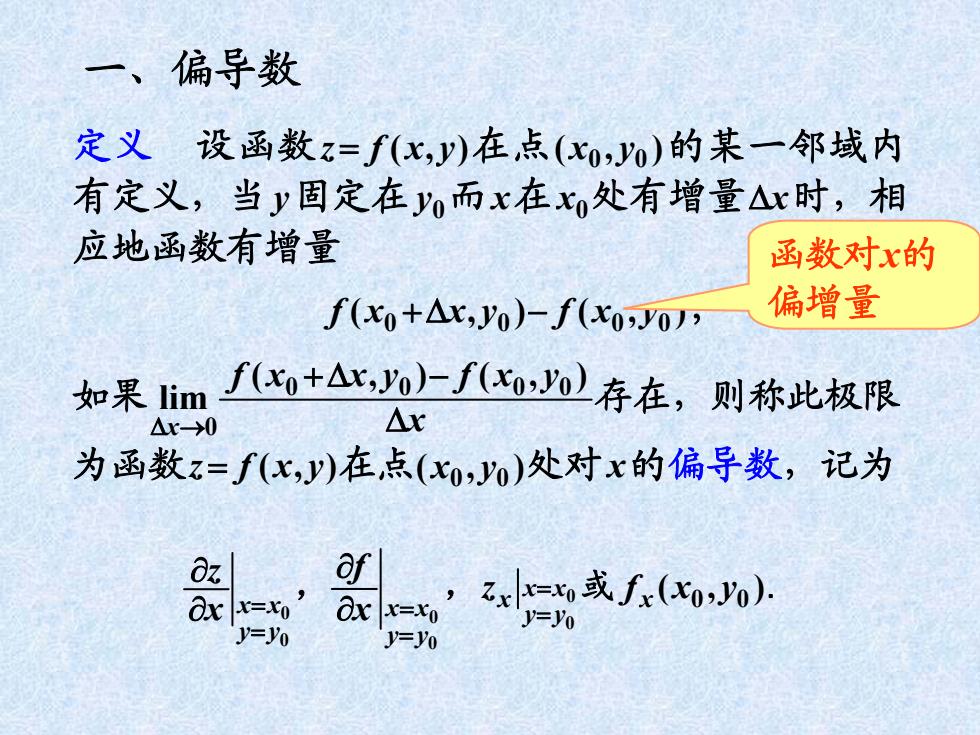 一、偏导数
定义 设函数z=f(x,y)在点(x₀,y₀)的某一邻域内
有定义，当y固定在y₀而x在x₀处有增量Δx时，相
应地函数有增量
函数对x的
偏增量
f(x₀+Δx,y₀)−f(x₀,y₀),
如果 lim_{Δx→0} \frac{f(x₀+Δx,y₀)−f(x₀,y₀)}{Δx} 存在，则称此极限
为函数z=f(x,y)在点(x₀,y₀)处对x的偏导数，记为
\frac{∂z}{∂x}|_{x=x₀, y=y₀}，\frac{∂f}{∂x}|_{x=x₀, y=y₀}，z_x|_{x=x₀, y=y₀}或f_x(x₀,y₀).